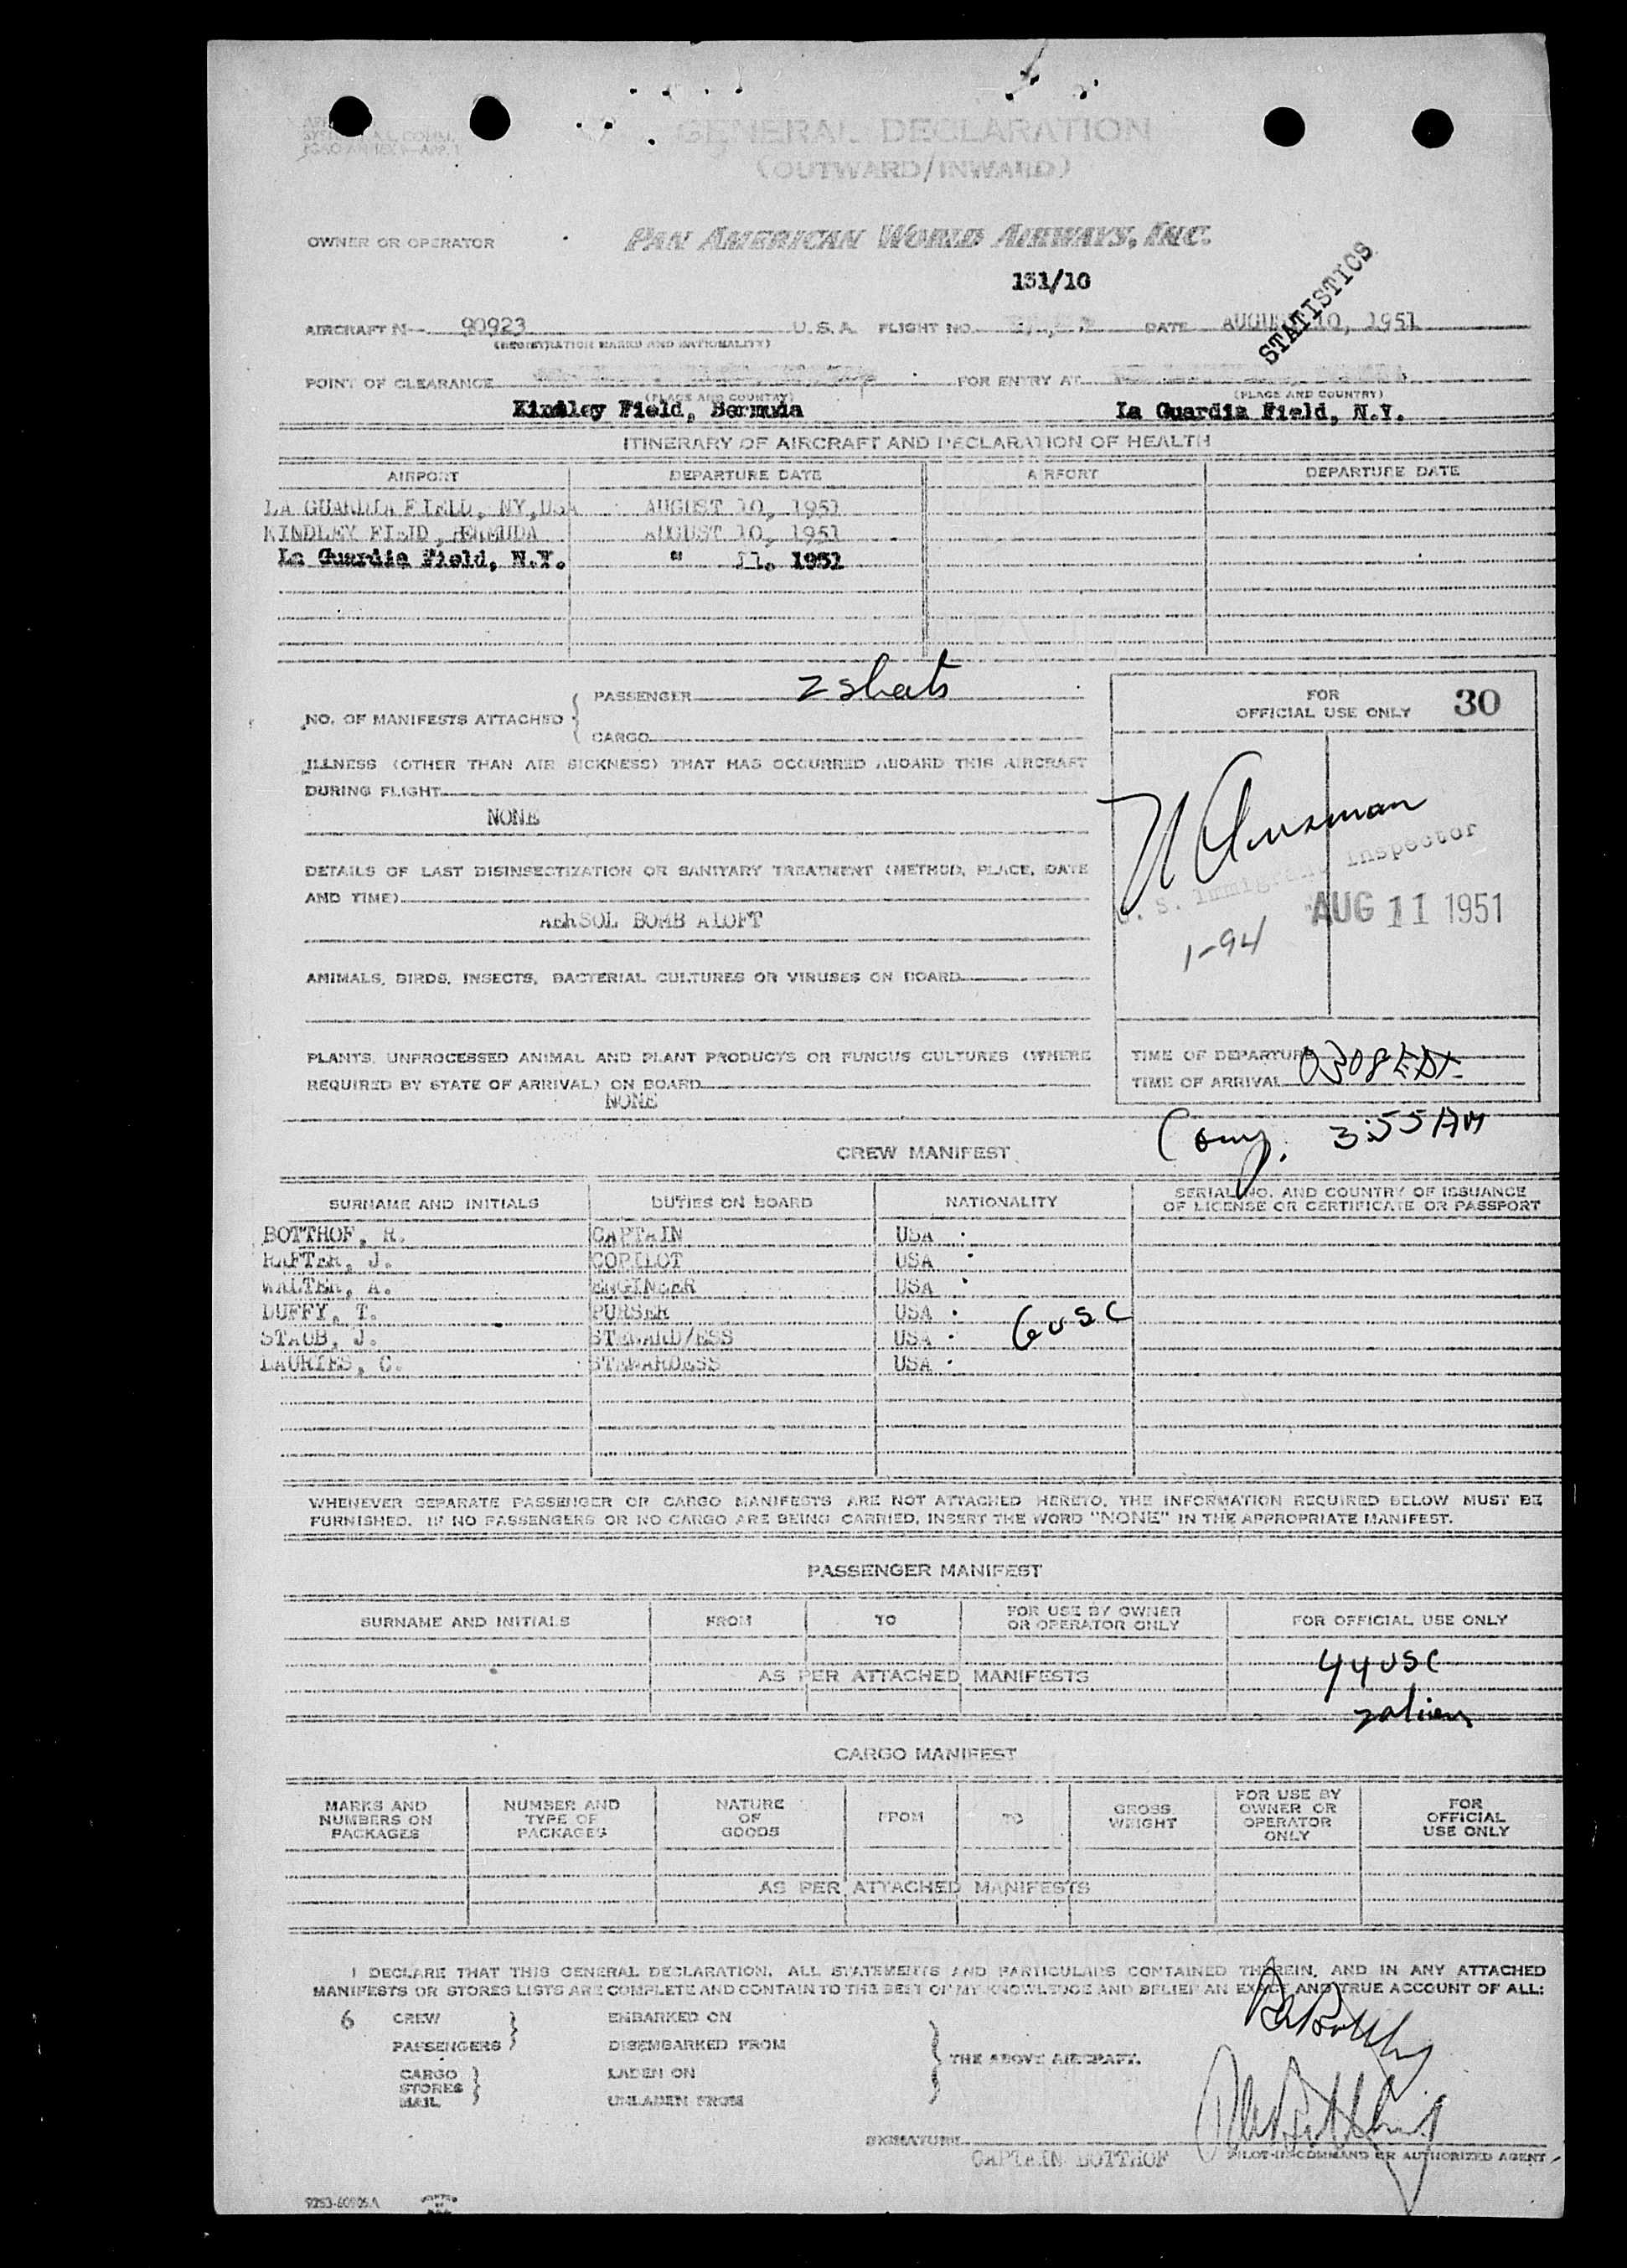 GENERAL DECLARATION
(OUTWARD/INWARD)
OWNER OR OPERATOR PAN AMERICAN WORLD AIRWAYS, INC.
131/10
STATISTICS
AIRCRAFT N- 90923 U.S.A. FLIGHT NO. DATE AUGUST 10, 1951
(REGISTRATION MARKS AND NATIONALITY)
POINT OF CLEARANCE FOR ENTRY AT
(PLACE AND COUNTRY) (PLACE AND COUNTRY)
Kindley Field, Bermuda La Guardia Field, N.Y.
ITINERARY OF AIRCRAFT AND DECLARATION OF HEALTH
AIRPORT DEPARTURE DATE AIRPORT DEPARTURE DATE
LA GUARDIA FIELD, NY, USA AUGUST 10, 1951
KINDLEY FIELD, BERMUDA AUGUST 10, 1951
La Guardia Field, N.Y. " 11. 1951
NO. OF MANIFESTS ATTACHED
PASSENGER 2 sheets
CARGO
FOR
OFFICIAL USE ONLY 30
ILLNESS (OTHER THAN AIR SICKNESS) THAT HAS OCCURRED ABOARD THIS AIRCRAFT
DURING FLIGHT
NONE
DETAILS OF LAST DISINSECTIZATION OR SANITARY TREATMENT (METHOD, PLACE, DATE
AND TIME)
AERSOL BOMB ALOFT
U. S. Immigrant Inspector
AUG 11 1951
1-94
ANIMALS, BIRDS, INSECTS, BACTERIAL CULTURES OR VIRUSES ON BOARD
PLANTS, UNPROCESSED ANIMAL AND PLANT PRODUCTS OR FUNGUS CULTURES (WHERE
REQUIRED BY STATE OF ARRIVAL) ON BOARD
NONE
TIME OF DEPARTURE
TIME OF ARRIVAL 0308 EDT
3:55 AM
CREW MANIFEST
SURNAME AND INITIALS DUTIES ON BOARD NATIONALITY SERIAL NO. AND COUNTRY OF ISSUANCE
OF LICENSE OR CERTIFICATE OR PASSPORT
BOTTHOF, R. CAPTAIN USA
RAFTER, J. COPILOT USA
WALTER, A. ENGINEER USA
DUFFY, T. PURSER USA 6 USC
STAUB, J. STEWARD/ESS USA
LAURIES, C. STEWARDESS USA
WHENEVER SEPARATE PASSENGER OR CARGO MANIFESTS ARE NOT ATTACHED HERETO, THE INFORMATION REQUIRED BELOW MUST BE
FURNISHED. IF NO PASSENGERS OR NO CARGO ARE BEING CARRIED, INSERT THE WORD "NONE" IN THE APPROPRIATE MANIFEST.
PASSENGER MANIFEST
SURNAME AND INITIALS FROM TO FOR USE BY OWNER
OR OPERATOR ONLY FOR OFFICIAL USE ONLY
AS PER ATTACHED MANIFESTS
44 USC
2 alien
CARGO MANIFEST
MARKS AND
NUMBERS ON
PACKAGES
NUMBER AND
TYPE OF
PACKAGES
NATURE
OF
GOODS
FROM
TO
GROSS
WEIGHT
FOR USE BY
OWNER OR
OPERATOR
ONLY
FOR
OFFICIAL
USE ONLY
AS PER ATTACHED MANIFESTS
I DECLARE THAT THIS GENERAL DECLARATION, ALL STATEMENTS AND PARTICULARS CONTAINED THEREIN, AND IN ANY ATTACHED
MANIFESTS OR STORES LISTS ARE COMPLETE AND CONTAIN TO THE BEST OF MY KNOWLEDGE AND BELIEF AN EXACT AND TRUE ACCOUNT OF ALL:
6 CREW EMBARKED ON
PASSENGERS DISEMBARKED FROM
THE ABOVE AIRCRAFT.
CARGO LADEN ON
STORES
MAIL UNLADEN FROM
SIGNATURE
CAPTAIN BOTTHOF PILOT-IN-COMMAND OR AUTHORIZED AGENT